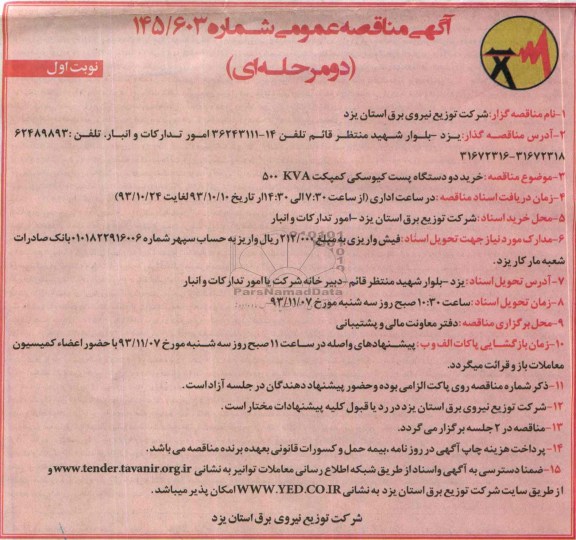 آگهی مناقصه عمومی شماره ۱۴۵/۶۰۳
(دومرحله‌ای)
نوبت اول
۱-نام مناقصه گزار: شرکت توزیع نیروی برق استان یزد
۲-آدرس مناقصه گذار: یزد -بلوار شهید منتظر قائم تلفن ۱۴-۳۶۲۴۳۱۱۱ امور تدارکات و انبار. تلفن: ۶۲۴۸۹۸۹۳
۳۱۶۷۲۳۱۶-۳۱۶۷۲۳۱۸
۳-موضوع مناقصه: خرید دو دستگاه پست کیوسکی کمپکت ۵۰۰ KVA
۴-زمان دریافت اسناد مناقصه: در ساعت اداری (از ساعت ۷:۳۰ الی ۱۴:۳۰از تاریخ ۹۳/۱۰/۱۰ لغایت ۹۳/۱۰/۲۴)
۵-محل خرید اسناد: شرکت توزیع برق استان یزد -امور تدارکات و انبار
۶-مدارک مورد نیاز جهت تحویل اسناد: فیش واریزی به مبلغ ۲۱۲/۰۰۰ ریال واریز به حساب سپهر شماره ۰۱۰۱۸۲۲۹۱۶۰۰۶ بانک صادرات
شعبه مارکار یزد.
۷-آدرس تحویل اسناد: یزد -بلوار شهید منتظر قائم -دبیر خانه شرکت یا امور تدارکات و انبار
۸-زمان تحویل اسناد: ساعت ۱۰:۳۰ صبح روز سه شنبه مورخ ۹۳/۱۱/۰۷-
۹-محل برگزاری مناقصه: دفتر معاونت مالی و پشتیبانی
۱۰-زمان بازگشایی پاکات الف و ب: پیشنهادهای واصله در ساعت ۱۱ صبح روز سه شنبه مورخ ۹۳/۱۱/۰۷ با حضور اعضاء کمیسیون
معاملات باز و قرائت میگردد.
۱۱-ذکر شماره مناقصه روی پاکت الزامی بوده و حضور پیشنهاد دهندگان در جلسه آزاد است.
۱۲-شرکت توزیع نیروی برق استان یزد در رد یا قبول کلیه پیشنهادات مختار است.
۱۳-مناقصه در ۲ جلسه برگزار می گردد.
۱۴- پرداخت هزینه چاپ آگهی در روزنامه ،بیمه حمل و کسورات قانونی بعهده برنده مناقصه می باشد.
۱۵-ضمنا دسترسی به آگهی و اسناد از طریق شبکه اطلاع رسانی معاملات توانیر به نشانی www.tender.tavanir.org.ir و
از طریق سایت شرکت توزیع برق استان یزد به نشانی WWW.YED.CO.IR امکان پذیر میباشد.
شرکت توزیع نیروی برق استان یزد
ParsNamadData